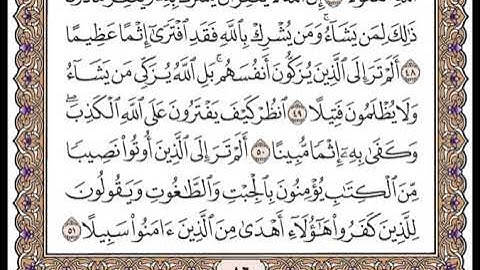 ذَٰلِكَ لِمَن يَشَآءُۚ وَمَن يُشْرِكْ بِٱللَّهِ فَقَدِ ٱفْتَرَىٰٓ إِثْمًا عَظِيمًا
٤٨ أَلَمْ تَرَ إِلَى ٱلَّذِينَ يُزَكُّونَ أَنفُسَهُمۚ بَلِ ٱللَّهُ يُزَكِّى مَن يَشَآءُ
وَلَا يُظْلَمُونَ فَتِيلًا ٤٩ ٱنظُرْ كَيْفَ يَفْتَرُونَ عَلَى ٱللَّهِ ٱلْكَذِبَۖ
وَكَفَىٰ بِهِۦٓ إِثْمًا مُّبِينًا ٥٠ أَلَمْ تَرَ إِلَى ٱلَّذِينَ أُوتُوا۟ نَصِيبًا
مِّنَ ٱلْكِتَٰبِ يُؤْمِنُونَ بِٱلْجِبْتِ وَٱلطَّٰغُوتِ وَيَقُولُونَ
لِلَّذِينَ كَفَرُوا۟ هَٰٓؤُلَآءِ أَهْدَىٰ مِنَ ٱلَّذِينَ ءَامَنُوا۟ سَبِيلًا ٥١